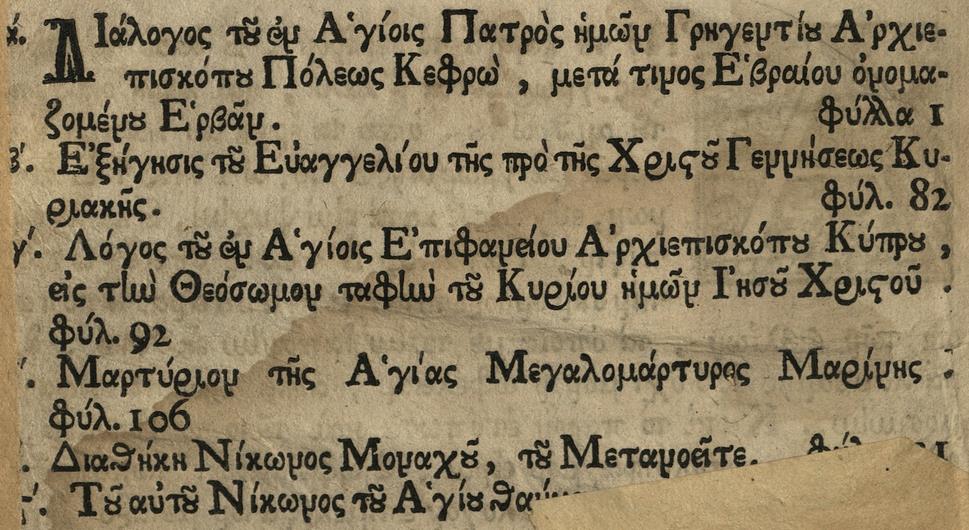 Διάλογος τοῦ ἐν Ἁγίοις Πατρὸς ἡμῶν Γρηγεντίου Ἀρχιε-
πισκόπου Πόλεως Κεφρῶ, μετά τινος Ἑβραίου ὀνομα-
ζομένου Ἑρβᾶν. φύλλα 1
β'. Ἐξήγησις τοῦ Εὐαγγελίου τῆς πρὸ τῆς Χριστοῦ Γεννήσεως Κυ-
ριακῆς. φύλ. 82
γ'. Λόγος τοῦ ἐν Ἁγίοις Ἐπιφανείου Ἀρχιεπισκόπου Κύπρου,
εἰς τὴν Θεόσωμον ταφὴν τοῦ Κυρίου ἡμῶν Ἰησοῦ Χριστοῦ.
φύλ. 92
Μαρτύριον τῆς Ἁγίας Μεγαλομάρτυρος Μαρίνης.
φύλ. 106
Διαθήκη Νίκωνος Μοναχοῦ, τοῦ Μετανοεῖτε.
Τοῦ αὐτοῦ Νίκωνος τοῦ Ἁγίου